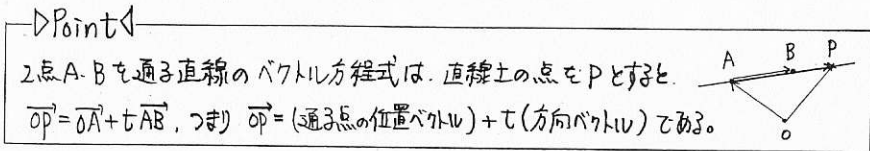 ▷Point◁
2点A.Bを通る直線のベクトル方程式は、直線上の点をPとすると、
OP→=OA→+tAB→、つまり OP→=(通る点の位置ベクトル)+t(方向ベクトル)である。
A B P
O